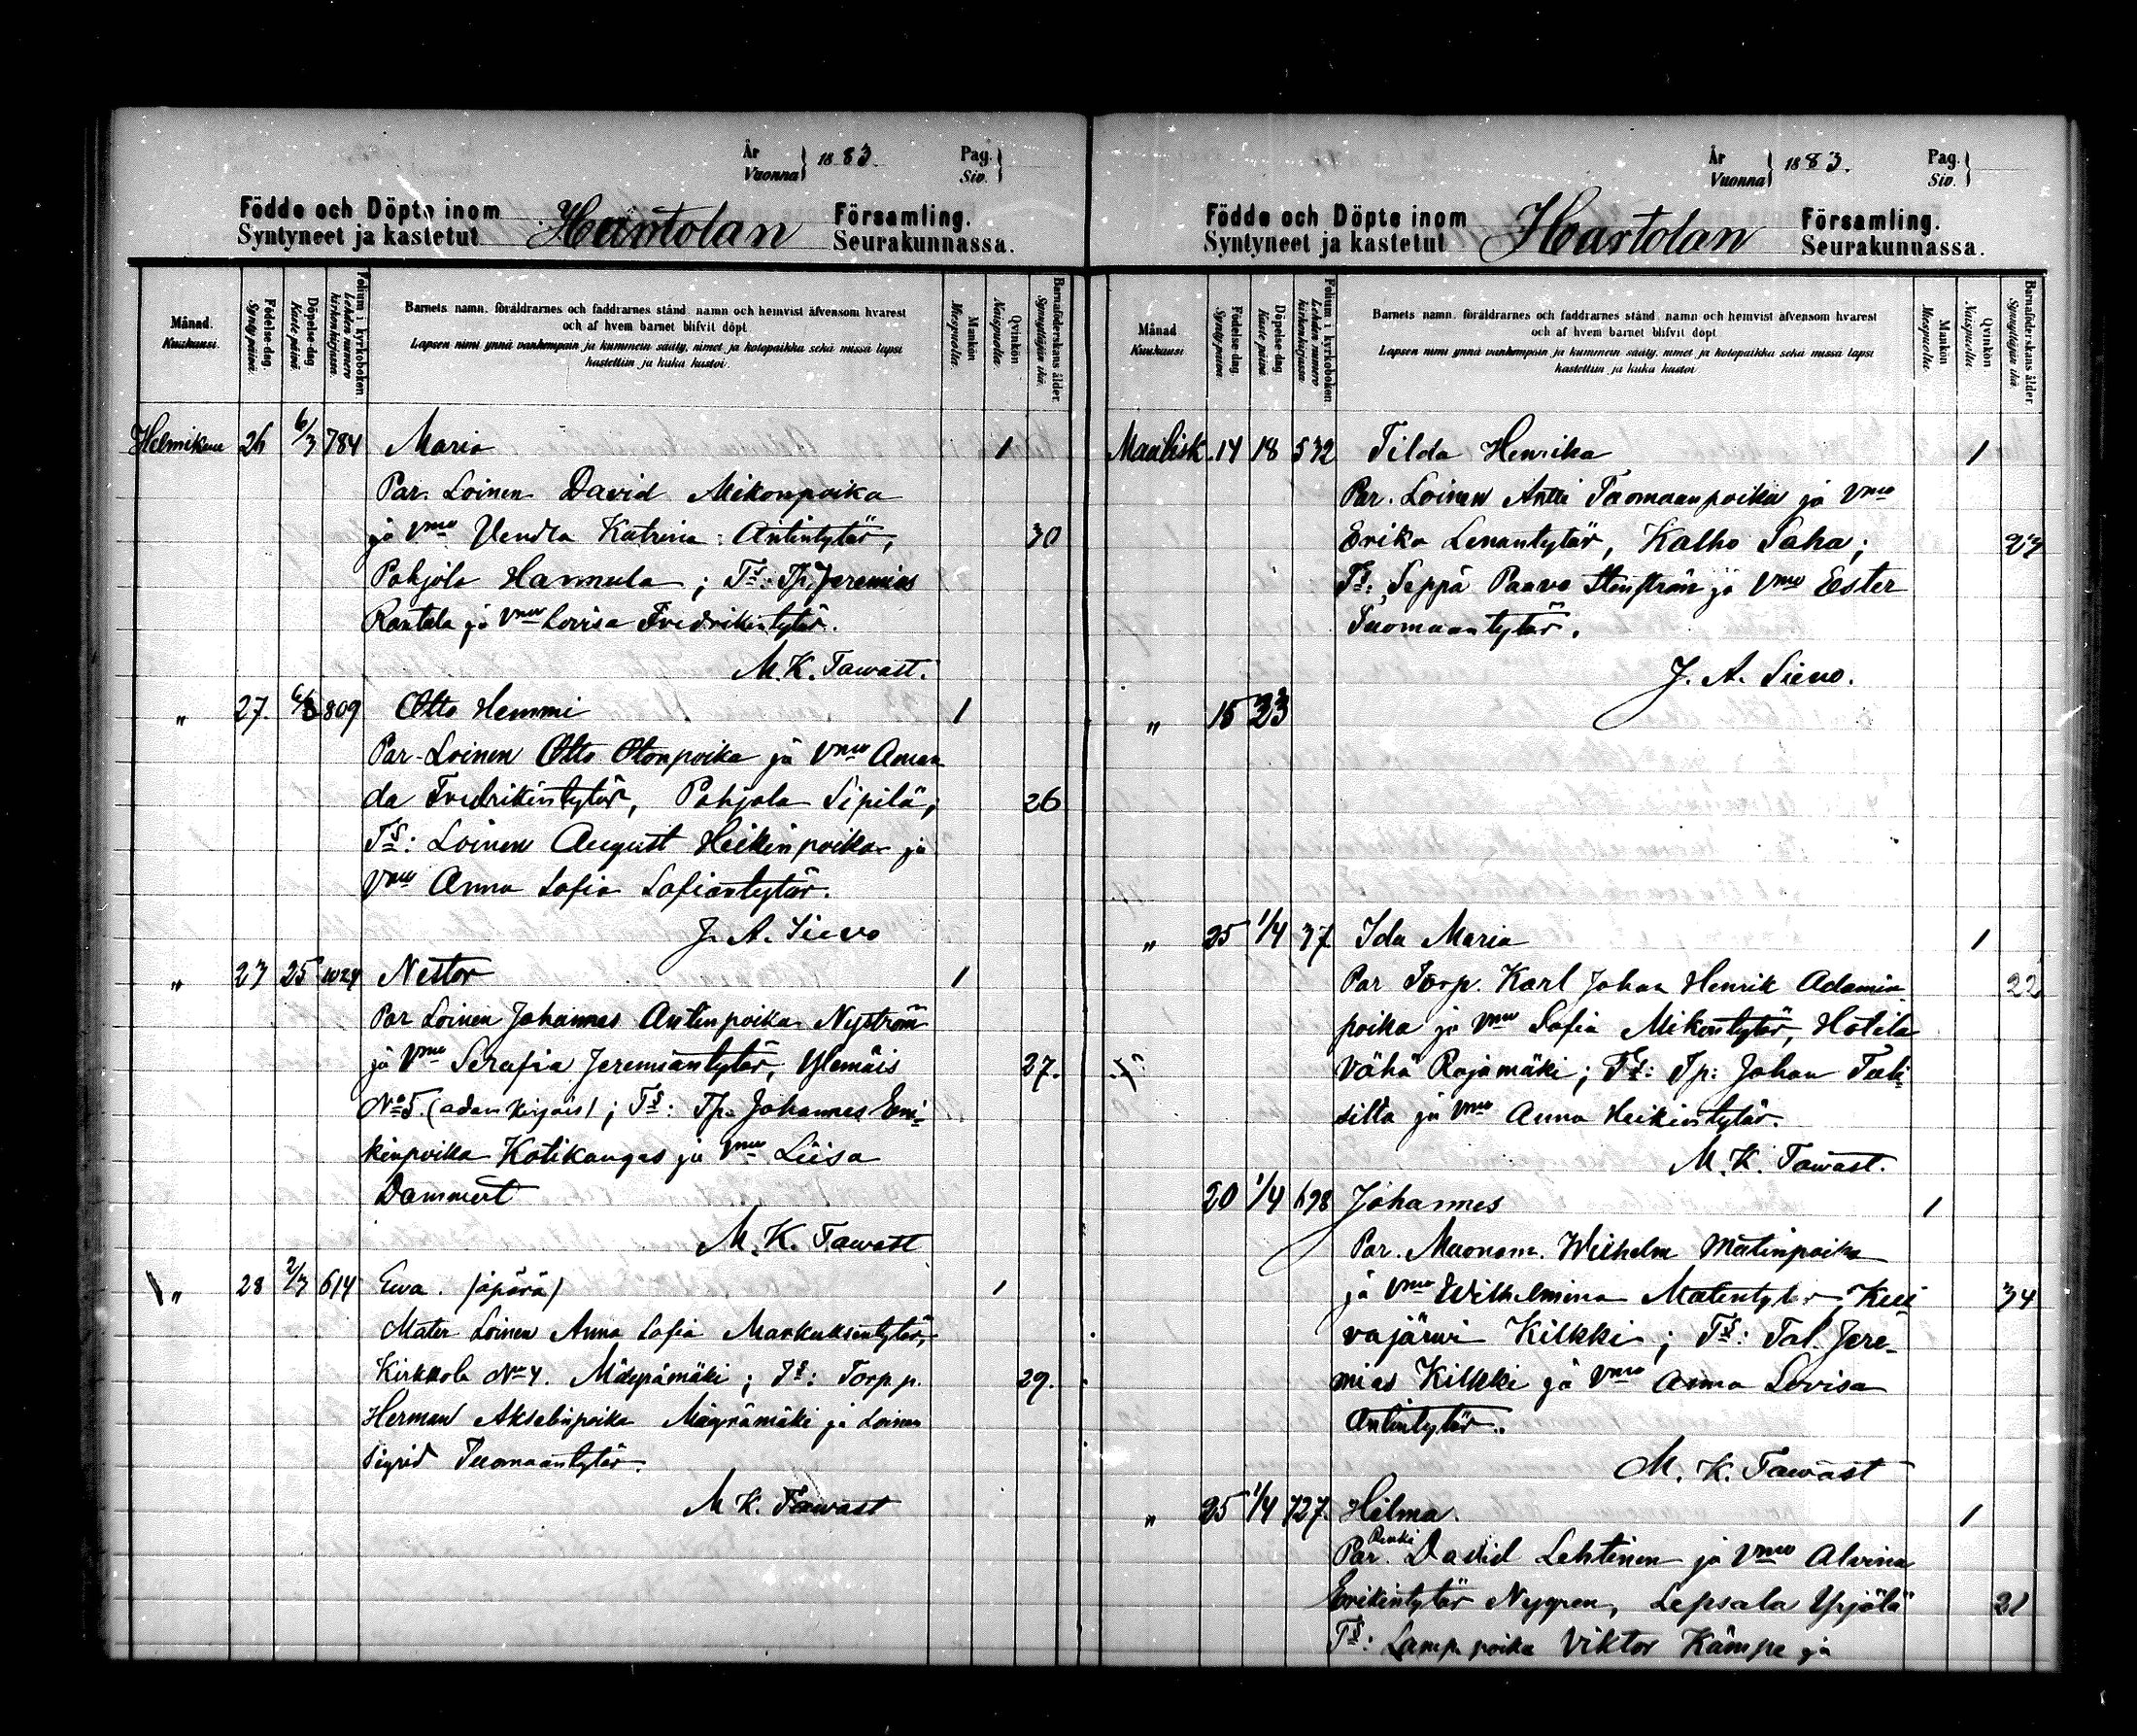 År
Vuonna } 1883.
Pag.
Siv. }
Födde och Döpte inom
Syntyneet ja kastetut
Hartolan
Församling.
Seurakunnassa.
Månad.
Kuukausi.
Födelse-dag.
Synty-päivä.
Döpelse-dag.
Kaste-päivä.
Folium i kyrkoboken
Lehden numero kirkonkirjassa.
Barnets namn, föräldrarnes och faddrarnes stånd, namn och hemvist äfvensom hvarest
och af hvem barnet blifvit döpt.
Lapsen nimi ynnä vanhempain ja kummein sääty, nimet ja kotopaikka sekä missä lapsi
kastettiin ja kuka kastoi.
Mankön
Miespuolia.
Qvinkön
Naispuolia.
Barnaföderskans ålder.
Synnyttäjän ikä.
Helmikuu 26 6/3 784 Maria 1
Par. Loinen David Mikonpoika
ja Vmo Vendla Katrina Antintytär, 30
Pohjola Hannula; Ts: Tp. Jeremias
Rantala ja Vmo Lovisa Fredrikintytär.
M. K. Tawast.
„ 27. 6/3 809 Otto Hemmi 1
Par. Loinen Otto Otonpoika ja Vmo Aman
da Fredrikintytär, Pohjola Sipilä, 26
Ts: Loinen August Heikinpoika ja
Vmo Anna Sofia Sofiantytär.
J. A. Sievo
„ 23 25 1024 Nestor 1
Par Loinen Johannes Antinpoika Nyström
ja Vmo Serafia Jeremiantytär, Ylemäis 27.
No 5. ; Ts: Tp. Johannes Eri-
kinpoika Kotikangas ja Vmo Liisa
Dammert
M. K. Tawast
„ 28 2/3 614 Ewa. (äpärä) 1
Mater Loinen Anna Sofia Markuksentytär,
Kirkkola No 4. Mäyrämäki; Ts: Torp.p. 29.
Herman Akselinpoika Mäyrämäki ja Loinen
Sigrid Tuomaantytär.
M K. Tawast
År
Vuonna } 1883.
Pag.
Siv. }
Födde och Döpte inom
Syntyneet ja kastetut
Hartolan
Församling.
Seurakunnassa.
Månad
Kuukausi
Födelse-dag.
Synty-päivä.
Döpelse-dag.
Kaste-päivä.
Folium i kyrkoboken.
Lehden numero kirkonkirjassa.
Barnets namn, föräldrarnes och faddrarnes stånd, namn och hemvist äfvensom hvarest
och af hvem barnet blifvit döpt.
Lapsen nimi ynnä vanhempain ja kummein sääty, nimet ja kotopaikka sekä missä lapsi
kastettiin ja kuka kastoi.
Mankön
Miespuolia.
Qvinkön
Naispuolia.
Barnaföderskans ålder.
Synnyttäjän ikä.
Maalisk. 14 18 532 Tilda Henrika 1
Par. Loinen Antti Tuomaanpoika ja Vmo
Erika Lenantytär, Kalho Saha; 27
Ts: Seppä Paavo Stenström ja Vmo Ester
Tuomaantytär.
J. A. Sievo.
„ 15 23
„ 25 1/4 37. Ida Maria 1
Par Torp. Karl Johan Henrik Adamin 22
poika ja Vmo Sofia Mikontytär, Hotila
Vähä Rajamäki; Ts: Tp: Johan
silta ja Vmo Anna Heikintytär.
M. K. Tawast.
20 1/4 698 Johannes 1
Par. Muonam. Wilhelm Matinpoika
ja Vmo Wilhelmina Matintytär, Kui 34
vajärwi Kilkki; Ts: Tal. Jere-
mias Kilkki ja Vmo Anna Lovisa
Antintytär.
M. K. Tawast
„ 25 1/4 727. Hilma. 1
Par. Renki David Lehtinen ja Vmo Alvina
Erikintytär Nygren, Lepsala Yrjölä 21
Ts: Lamp. poika Viktor Kämpe ja